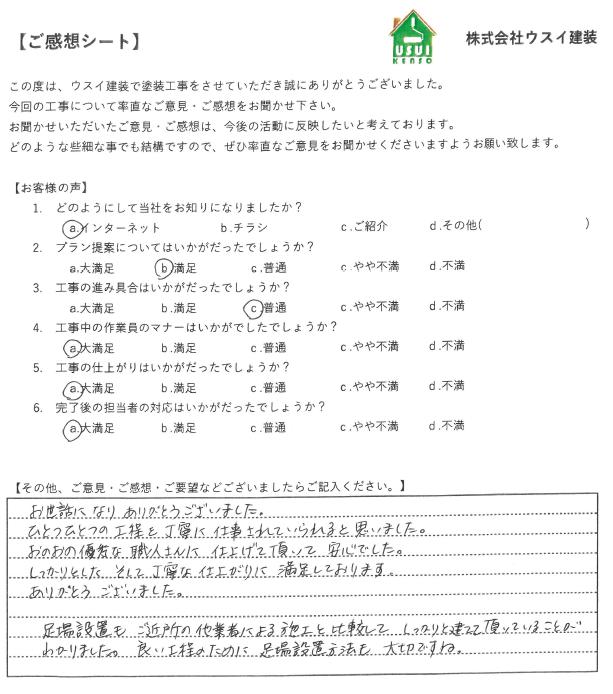 【ご感想シート】
USUI
KENSO
株式会社ウスイ建装
この度は、ウスイ建装で塗装工事をさせていただき誠にありがとうございました。
今回の工事について率直なご意見・ご感想をお聞かせ下さい。
お聞かせいただいたご意見・ご感想は、今後の活動に反映したいと考えております。
どのような些細な事でも結構ですので、ぜひ率直なご意見をお聞かせくださいますようお願い致します。
【お客様の声】
1. どのようにして当社をお知りになりましたか？
a.インターネット b.チラシ c.ご紹介 d.その他( )
2. プラン提案についてはいかがだったでしょうか？
a.大満足 b.満足 c.普通 c.やや不満 d.不満
3. 工事の進み具合はいかがだったでしょうか？
a.大満足 b.満足 c.普通 c.やや不満 d.不満
4. 工事中の作業員のマナーはいかがでしたでしょうか？
a.大満足 b.満足 c.普通 c.やや不満 d.不満
5. 工事の仕上がりはいかがだったでしょうか？
a.大満足 b.満足 c.普通 c.やや不満 d.不満
6. 完了後の担当者の対応はいかがだったでしょうか？
a.大満足 b.満足 c.普通 c.やや不満 d.不満
【その他、ご意見・ご感想・ご要望などございましたらご記入ください。】
お世話になり ありがとうございました。
ひとつひとつの工程を丁寧に仕事されていられると思いました。
おのおの優秀な職人さんに仕上げて頂いて安心でした。
しっかりとした そして丁寧な仕上がりに満足しております。
ありがとうございました。
足場設置も ご近所の他業者による施工と比較して しっかりと建って頂いていることが
わかりました。良い工程のために足場設置方法も大切ですね。